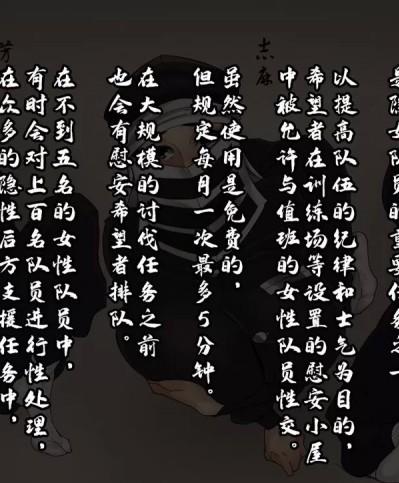 是隐女队员的重要任务之一
以提高队伍的纪律和士气为目的，
希望者在训练场等设置的慰安小屋
中被允许与值班的女性队员性交。
虽然使用是免费的，
但规定每月一次最多5分钟。
在大规模的讨伐任务之前
也会有慰安希望者排队。
在不到五名的女性队员中，
有时会对上百名队员进行性处理，
在众多的隐性后方支援任务中，